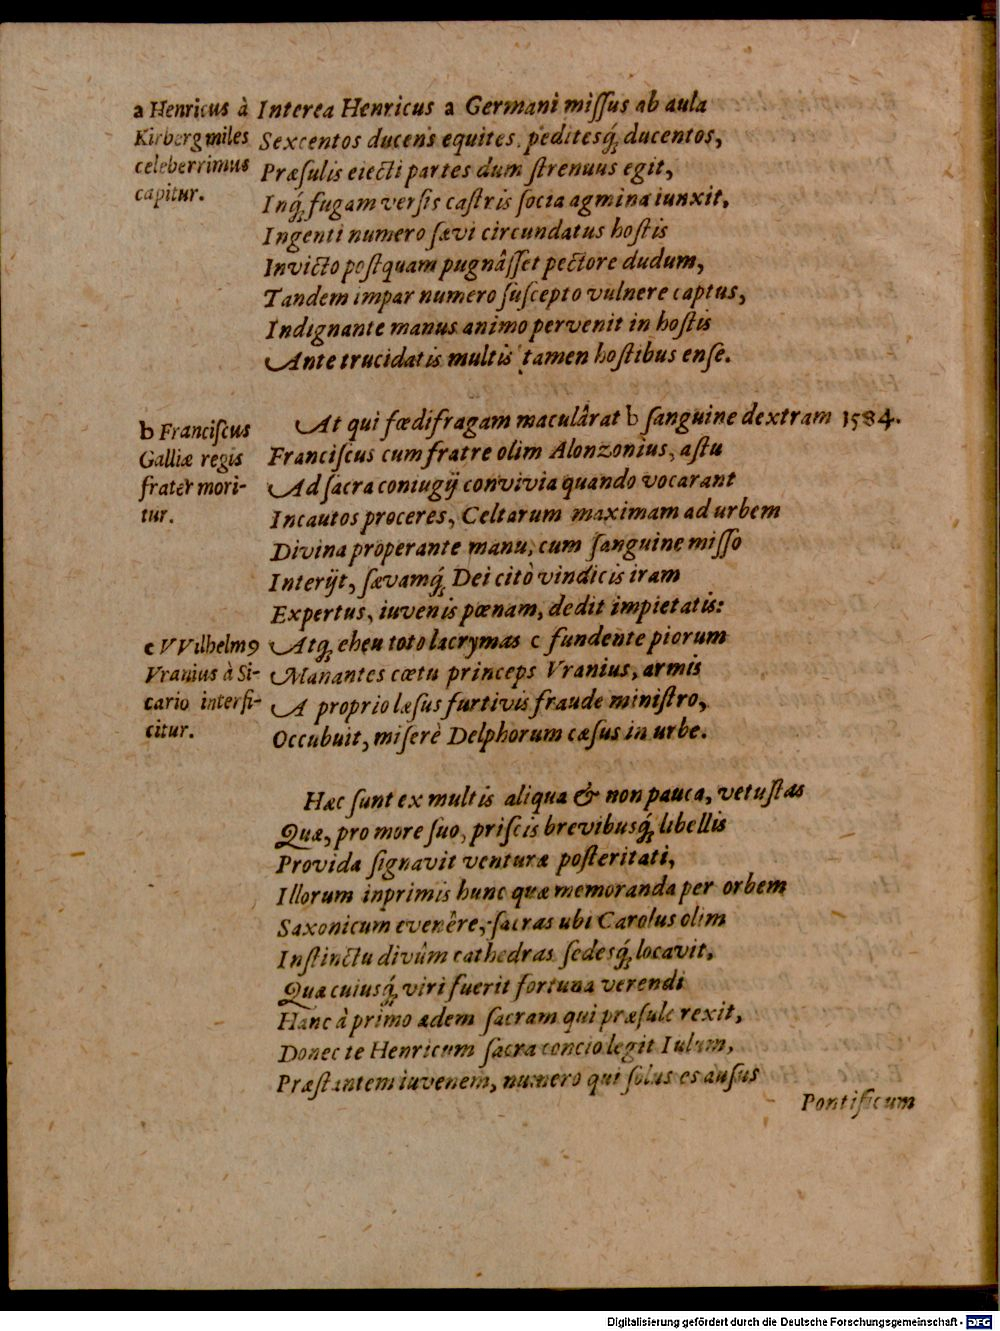 a Henricus à
Kirberg miles
celeberrimus
capitur.
Interea Henricus a Germani miſſus ab aula
Sexcentos ducens equites, peditesq́; ducentos,
Præſulis eiecti partes dum ſtrenuus egit,
Inq́; fugam verſis caſtris ſocia agmina iunxit,
Ingenti numero ſævi circundatus hoſtis
Invicto poſtquam pugnâſſet pectore dudum,
Tandem impar numero ſuſcepto vulnere captus,
Indignante manus animo pervenit in hoſtis
Ante trucidatis multis tamen hoſtibus enſe.
b Franciſcus
Galliæ regis
frater mori-
tur.
At qui fœdifragam maculârat b ſanguine dextram 1584.
Franciſcus cum fratre olim Alonzonius, aſtu
Ad ſacra coniugij convivia quando vocarant
Incautos proceres, Celtarum maximam ad urbem
Divina properante manu, cum ſanguine miſſo
Interijt, ſævamq́; Dei citò vindicis iram
Expertus, iuvenis pœnam, dedit impietatis:
c VVilhelmꝰ
Vranius à Si-
cario interfi-
citur.
Atq́; eheu toto lacrymas c fundente piorum
Manantes cœtu princeps Vranius, armis
A proprio læſus furtivis fraude miniſtro,
Occubuit, miſerè Delphorum cæſus in urbe.
Hæc ſunt ex multis aliqua & non pauca, vetuſtas
Quæ, pro more ſuo, priſcis brevibusq́; libellis
Provida ſignavit venturæ poſteritati,
Illorum inprimis hunc quæ memoranda per orbem
Saxonicum evenêre, ſacras ubi Carolus olim
Inſtinctu divûm cathedras ſedesq́; locavit,
Quæ cuiusq́; viri fuerit fortuna verendi
Hanc à primo ædem ſacram qui præſule rexit,
Donec te Henricum ſacra concio legit Iulum,
Præſtantem iuvenem, numero qui ſolus es auſus
Pontificum
Digitalisierung gefördert durch die Deutsche Forschungsgemeinschaft - DFG